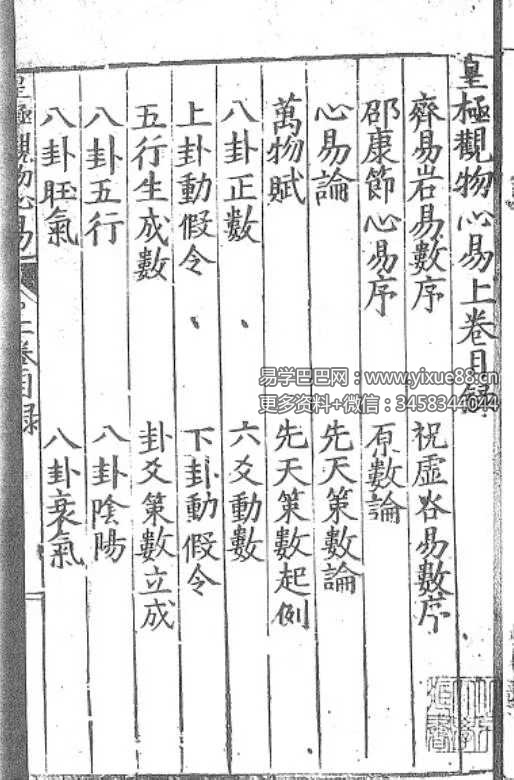 皇極觀物心易上卷目録
齊易岩易數序 祝虛谷易數序
邵康節心易序 原數論
心易論 先天策數論
萬物賦 先天策數起例
八卦正數 六爻動數
上卦動假令 下卦動假令
五行生成數 卦爻策數立成
八卦五行 八卦陰陽
八卦旺氣 八卦衰氣
皇極觀物心易 上卷目録
易学巴巴网：www.yixue88.cn
更多资料+微信：3458344044